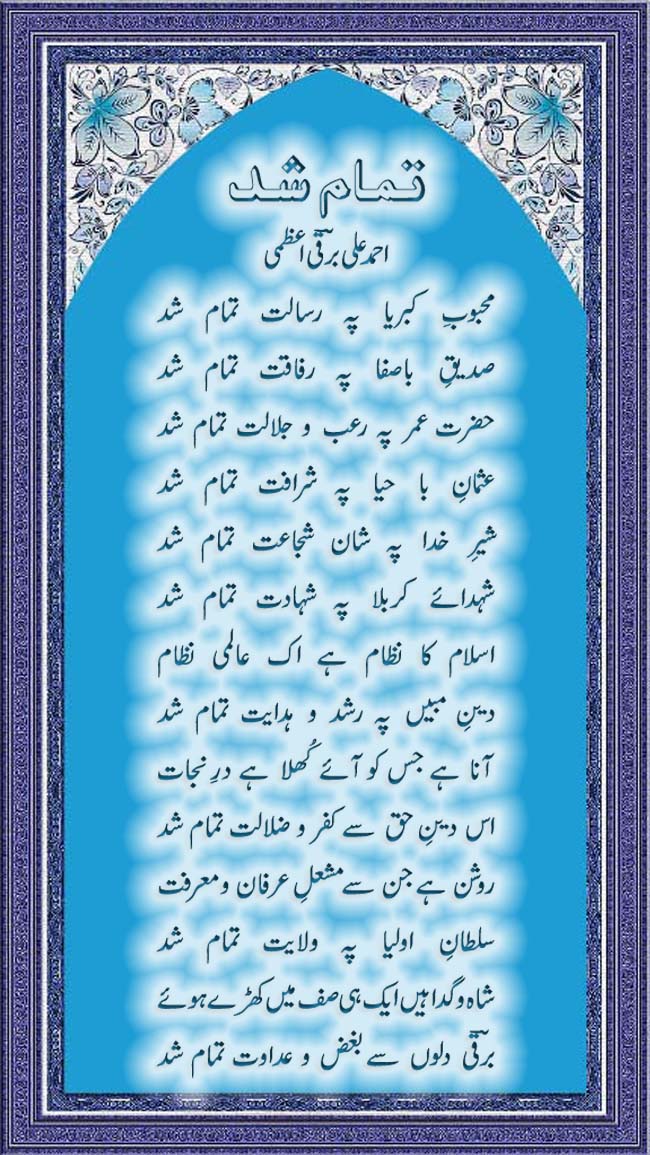 تمام شد
احمد علی برقیؔ اعظمی
محبوبِ کبریا پہ رسالت تمام شد
صدیقِ باصفا پہ رفاقت تمام شد
حضرت عمر پہ رعب و جلالت تمام شد
عثمانِ با حیا پہ شرافت تمام شد
شیرِ خدا پہ شان شجاعت تمام شد
شہدائے کربلا پہ شہادت تمام شد
اسلام کا نظام ہے اک عالمی نظام
دینِ مبیں پہ رشد و ہدایت تمام شد
آنا ہے جس کو آئے کُھلا ہے درِ نجات
اس دینِ حق سے کفر و ضلالت تمام شد
روشن ہے جن سے مشعلِ عرفان و معرفت
سلطانِ اولیا پہ ولایت تمام شد
شاہ و گدا ہیں ایک ہی صف میں کھڑے ہوئے
برقیؔ دلوں سے بغض و عداوت تمام شد